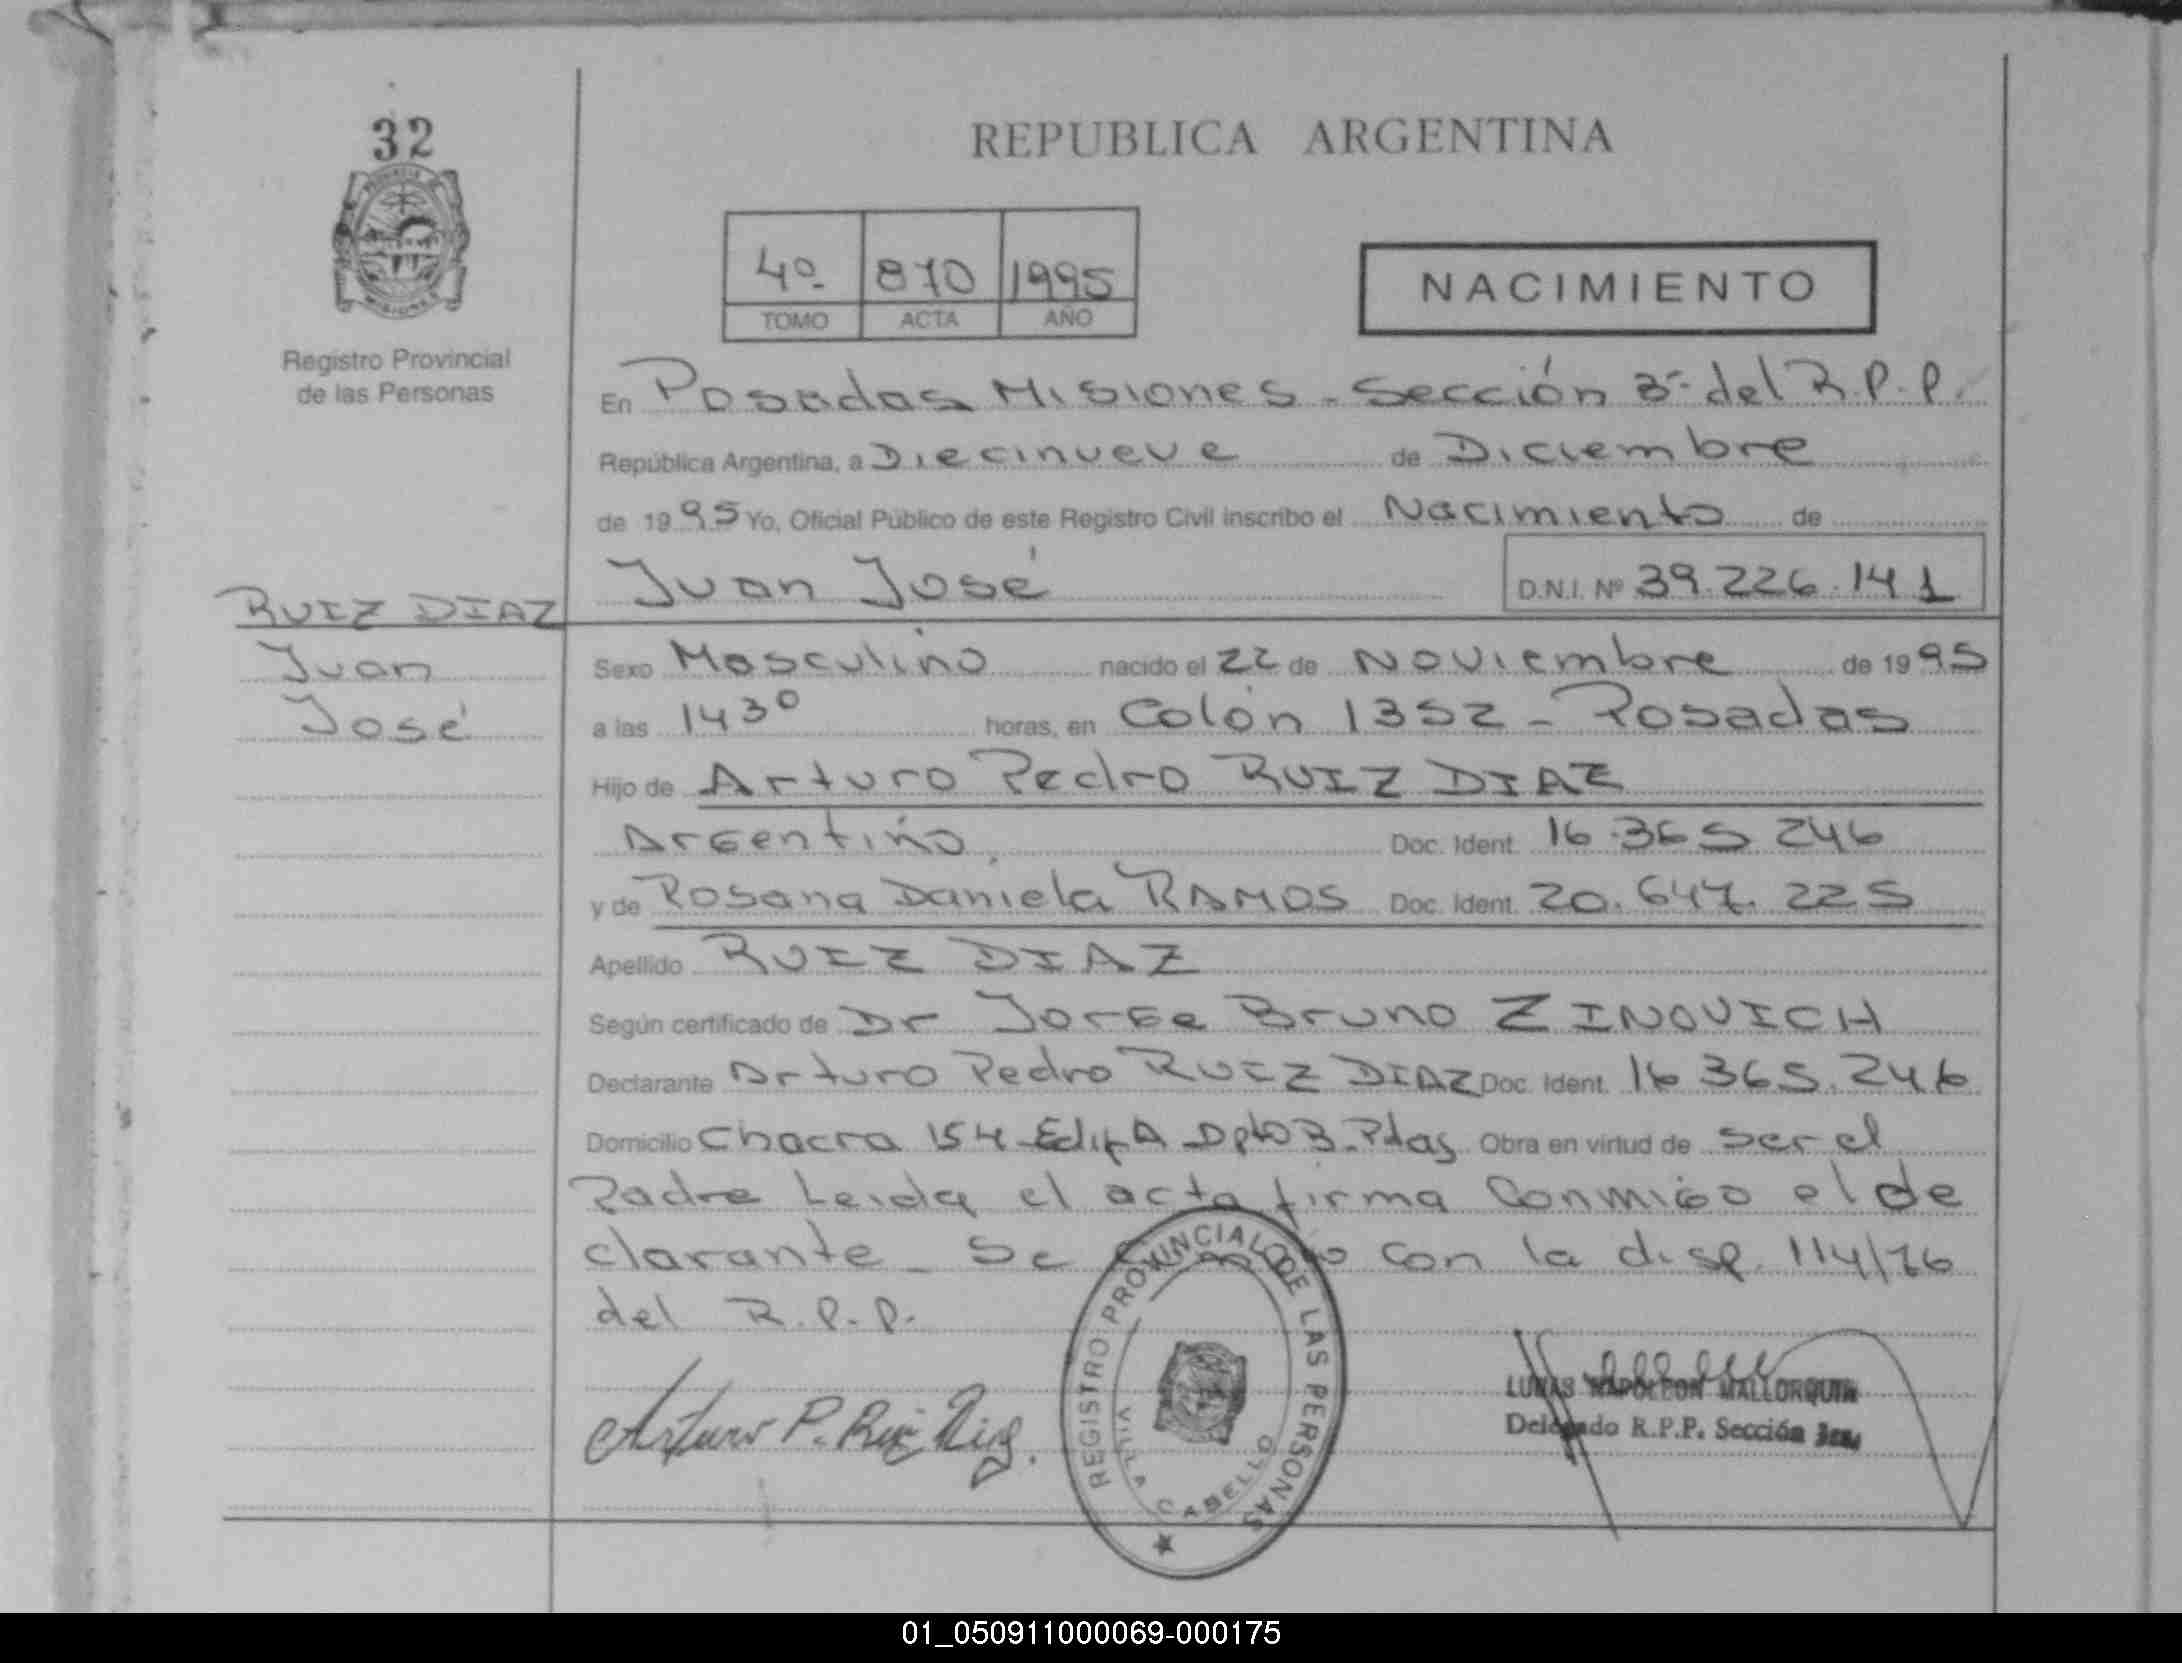 32
PROVINCIA DE
MISIONES
Registro Provincial
de las Personas
REPUBLICA ARGENTINA
4º 870 1995
TOMO ACTA AÑO
NACIMIENTO
En Posadas Misiones - Sección 3ª del R.P.P.
República Argentina, a Diecinueve de Diciembre
de 1995 Yo, Oficial Público de este Registro Civil inscribo el Nacimiento de
Juan José D.N.I. Nº 39.226.141
RUIZ DIAZ
Juan
José
Sexo Masculino nacido el 22 de Noviembre de 1995
a las 1430 horas, en Colón 1352 - Posadas
Hijo de Arturo Pedro RUIZ DIAZ
Argentino Doc. Ident. 16.365 246
y de Rosana Daniela RAMOS Doc. Ident. 20.647.225
Apellido RUIZ DIAZ
Según certificado de Dr Jorge Bruno ZINOVICH
Declarante Arturo Pedro RUIZ DIAZ Doc. Ident. 16 365.246
Domicilio Chacra 154 Edif A Dpto B - Pdas Obra en virtud de ser el
Padre Leida el acta firma Conmigo el de
clarante - Se con la disp. 114/76
del R.P.P.
Arturo P. Ruiz Diaz.
REGISTRO PROVINCIAL DE LAS PERSONAS
VILLA CABELLO
LUCAS NAPOLEON MALLORQUIN
Delegado R.P.P. Sección 3ra.
01_050911000069-000175